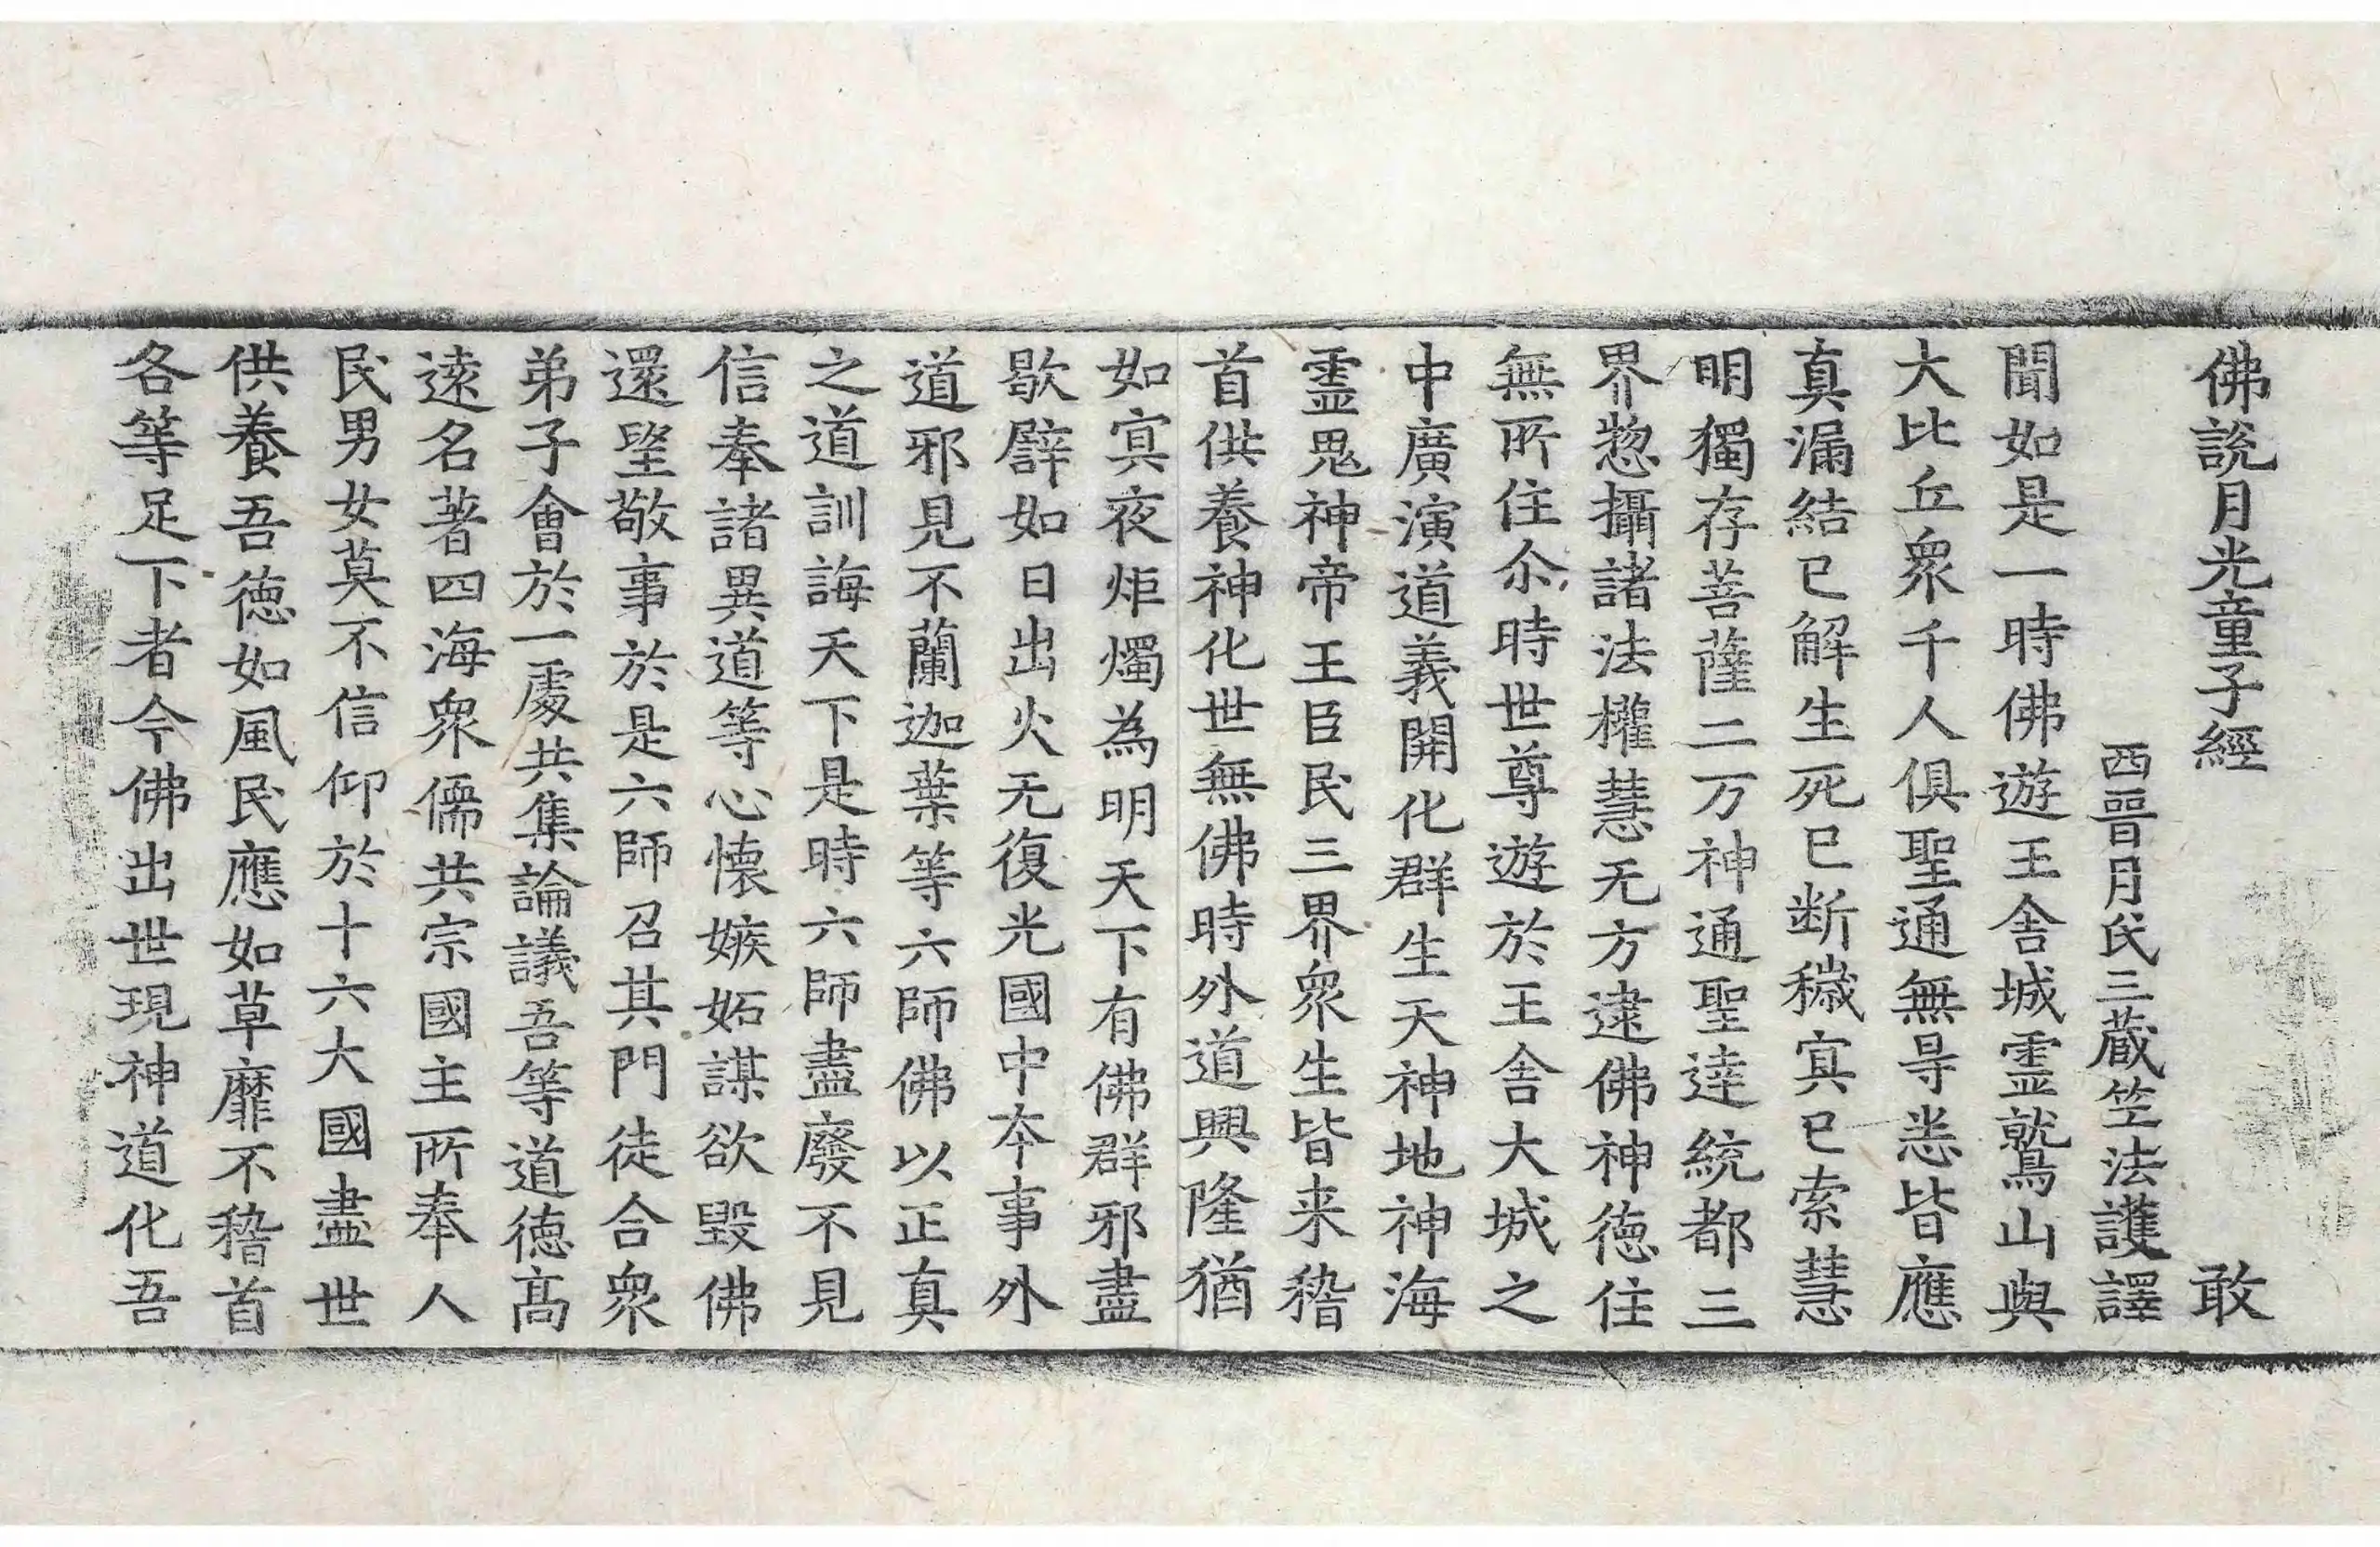 佛說月光童子經 敢
西晉月氏三藏笁法護譯
聞如是一時佛遊王舍城霊鷲山與
大比丘衆千人俱聖通無㝵悉皆應
真漏結已解生死已断穢㝠已索慧
明獨存菩薩二万神通聖達統都三
界惣攝諸法權慧无方逮佛神徳住
無所住尒時世尊遊於王舍大城之
中廣演道義開化群生天神地神海
霊鬼神帝王臣民三界衆生皆来稽
首供養神化世無佛時外道興隆猶
如㝠夜炬燭為明天下有佛群邪盡
歇譬如日出火无復光國中夲事外
道邪見不蘭迦葉等六師佛以正真
之道訓誨天下是時六師盡廢不見
信奉諸異道等心懐嫉妬謀欲毀佛
還望敬事於是六師召其門徒合衆
弟子會於一處共集論議吾等道徳髙
逺名著四海衆儒共宗國主所奉人
民男女莫不信仰於十六大國盡世
供養吾徳如風民應如草靡不稽首
各等足下者今佛出世現神道化吾